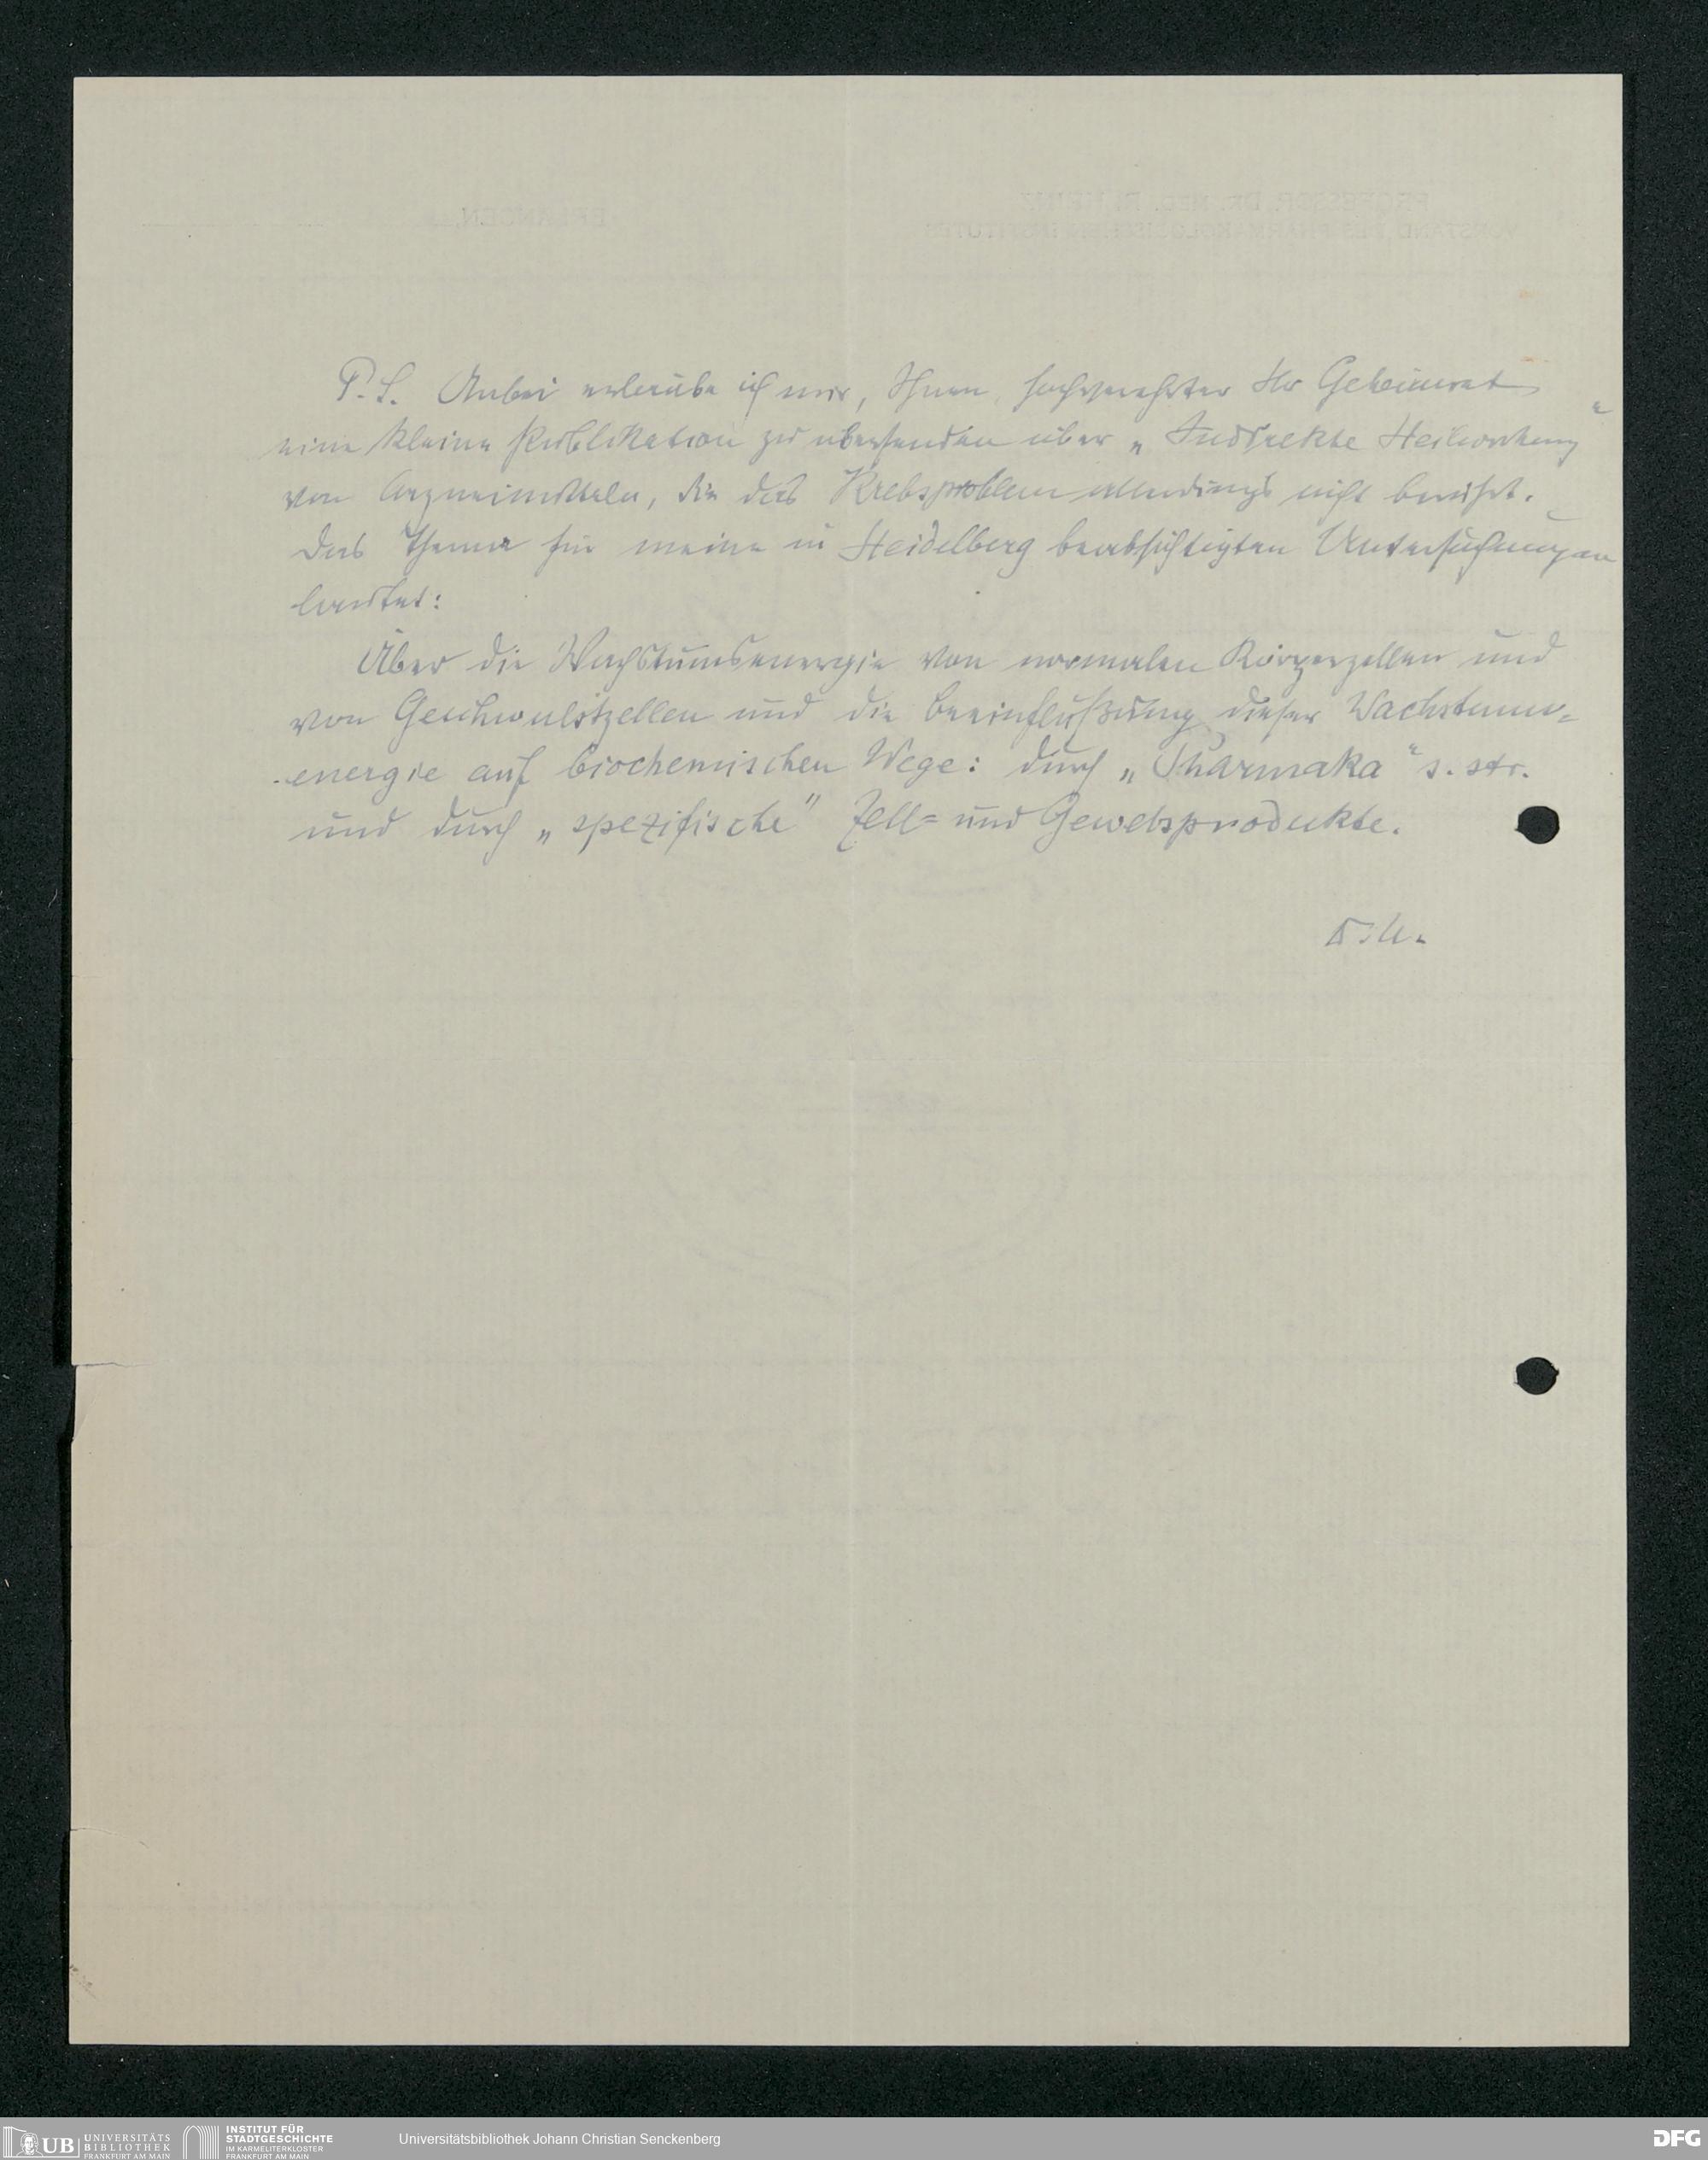 P.S. Anbei erlaube ich mir, Ihnen, hochverehrter Hr Geheimrat
eine kleine Publikation zu übersenden über „Indirekte Heilwirkung"
von Arzneimitteln, die das Krebsproblem allerdings nicht berührt.
Das Thema für meine in Heidelberg beabsichtigten Untersuchungen
lautet:
Über die Wachstumsenergie von normalen Körperzellen und
von Geschwulstzellen und die Beeinflußung dieser Wachstums=
energie auf biochemischen Wege: durch „Pharmaka" s. str.
und durch „spezifische" Zell= und Gewebsprodukte.
UB UNIVERSITÄTS BIBLIOTHEK FRANKFURT AM MAIN
INSTITUT FÜR STADTGESCHICHTE IM KARMELITERKLOSTER FRANKFURT AM MAIN
Universitätsbibliothek Johann Christian Senckenberg
DFG